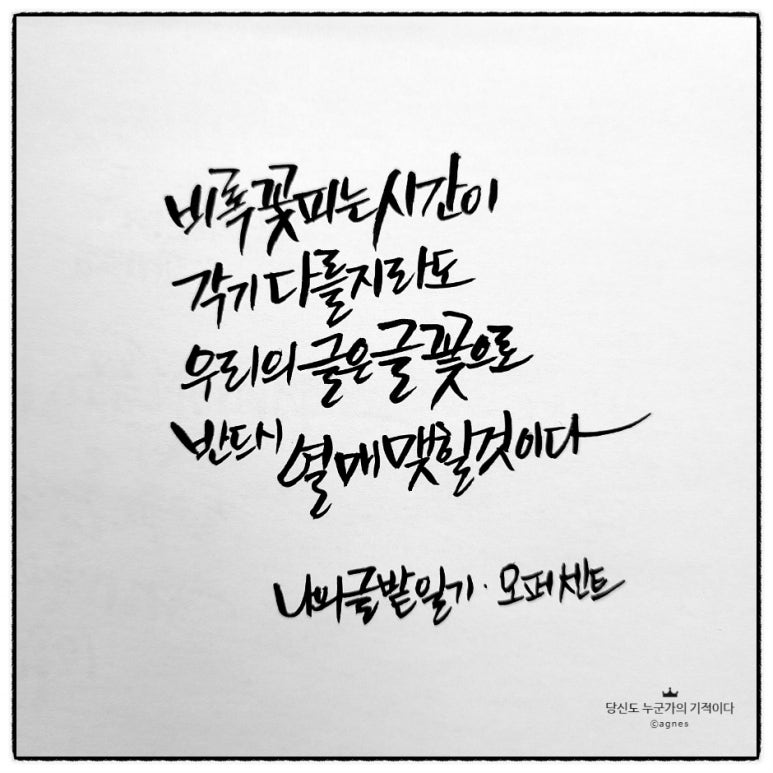 비록 꽃피는 시간이
각기 다를지라도
우리의 글은 글꽃으로
반드시 열매 맺힐 것이다
나의 글밭일기 · 오페센트
당신도 누군가의 기적이다
©agnes